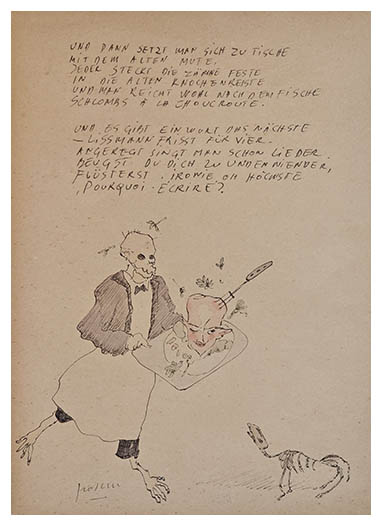 UND DANN SETZT MAN SICH ZU TISCHE
MIT DEM ALTEN MUTE.
JEDER STECKT DIE ZÄHNE FESTE
IN DIE ALTEN KNOCHENRESTE
UND MAN REICHT WOHL NACH DEM FISCHE
SCHLOMBS À LA CHOUCROUTE.
UND ES GIBT EIN WORT DAS NÄCHSTE
– LISSMANN FRISST FÜR VIER.
ANGEREGT SINGT MAN SCHON LIEDER.
BEUGST DU DICH ZU UND
FLÜSTERST. IRONIE OH HÖCHSTE
„POURQUOI ÉCRIRE?